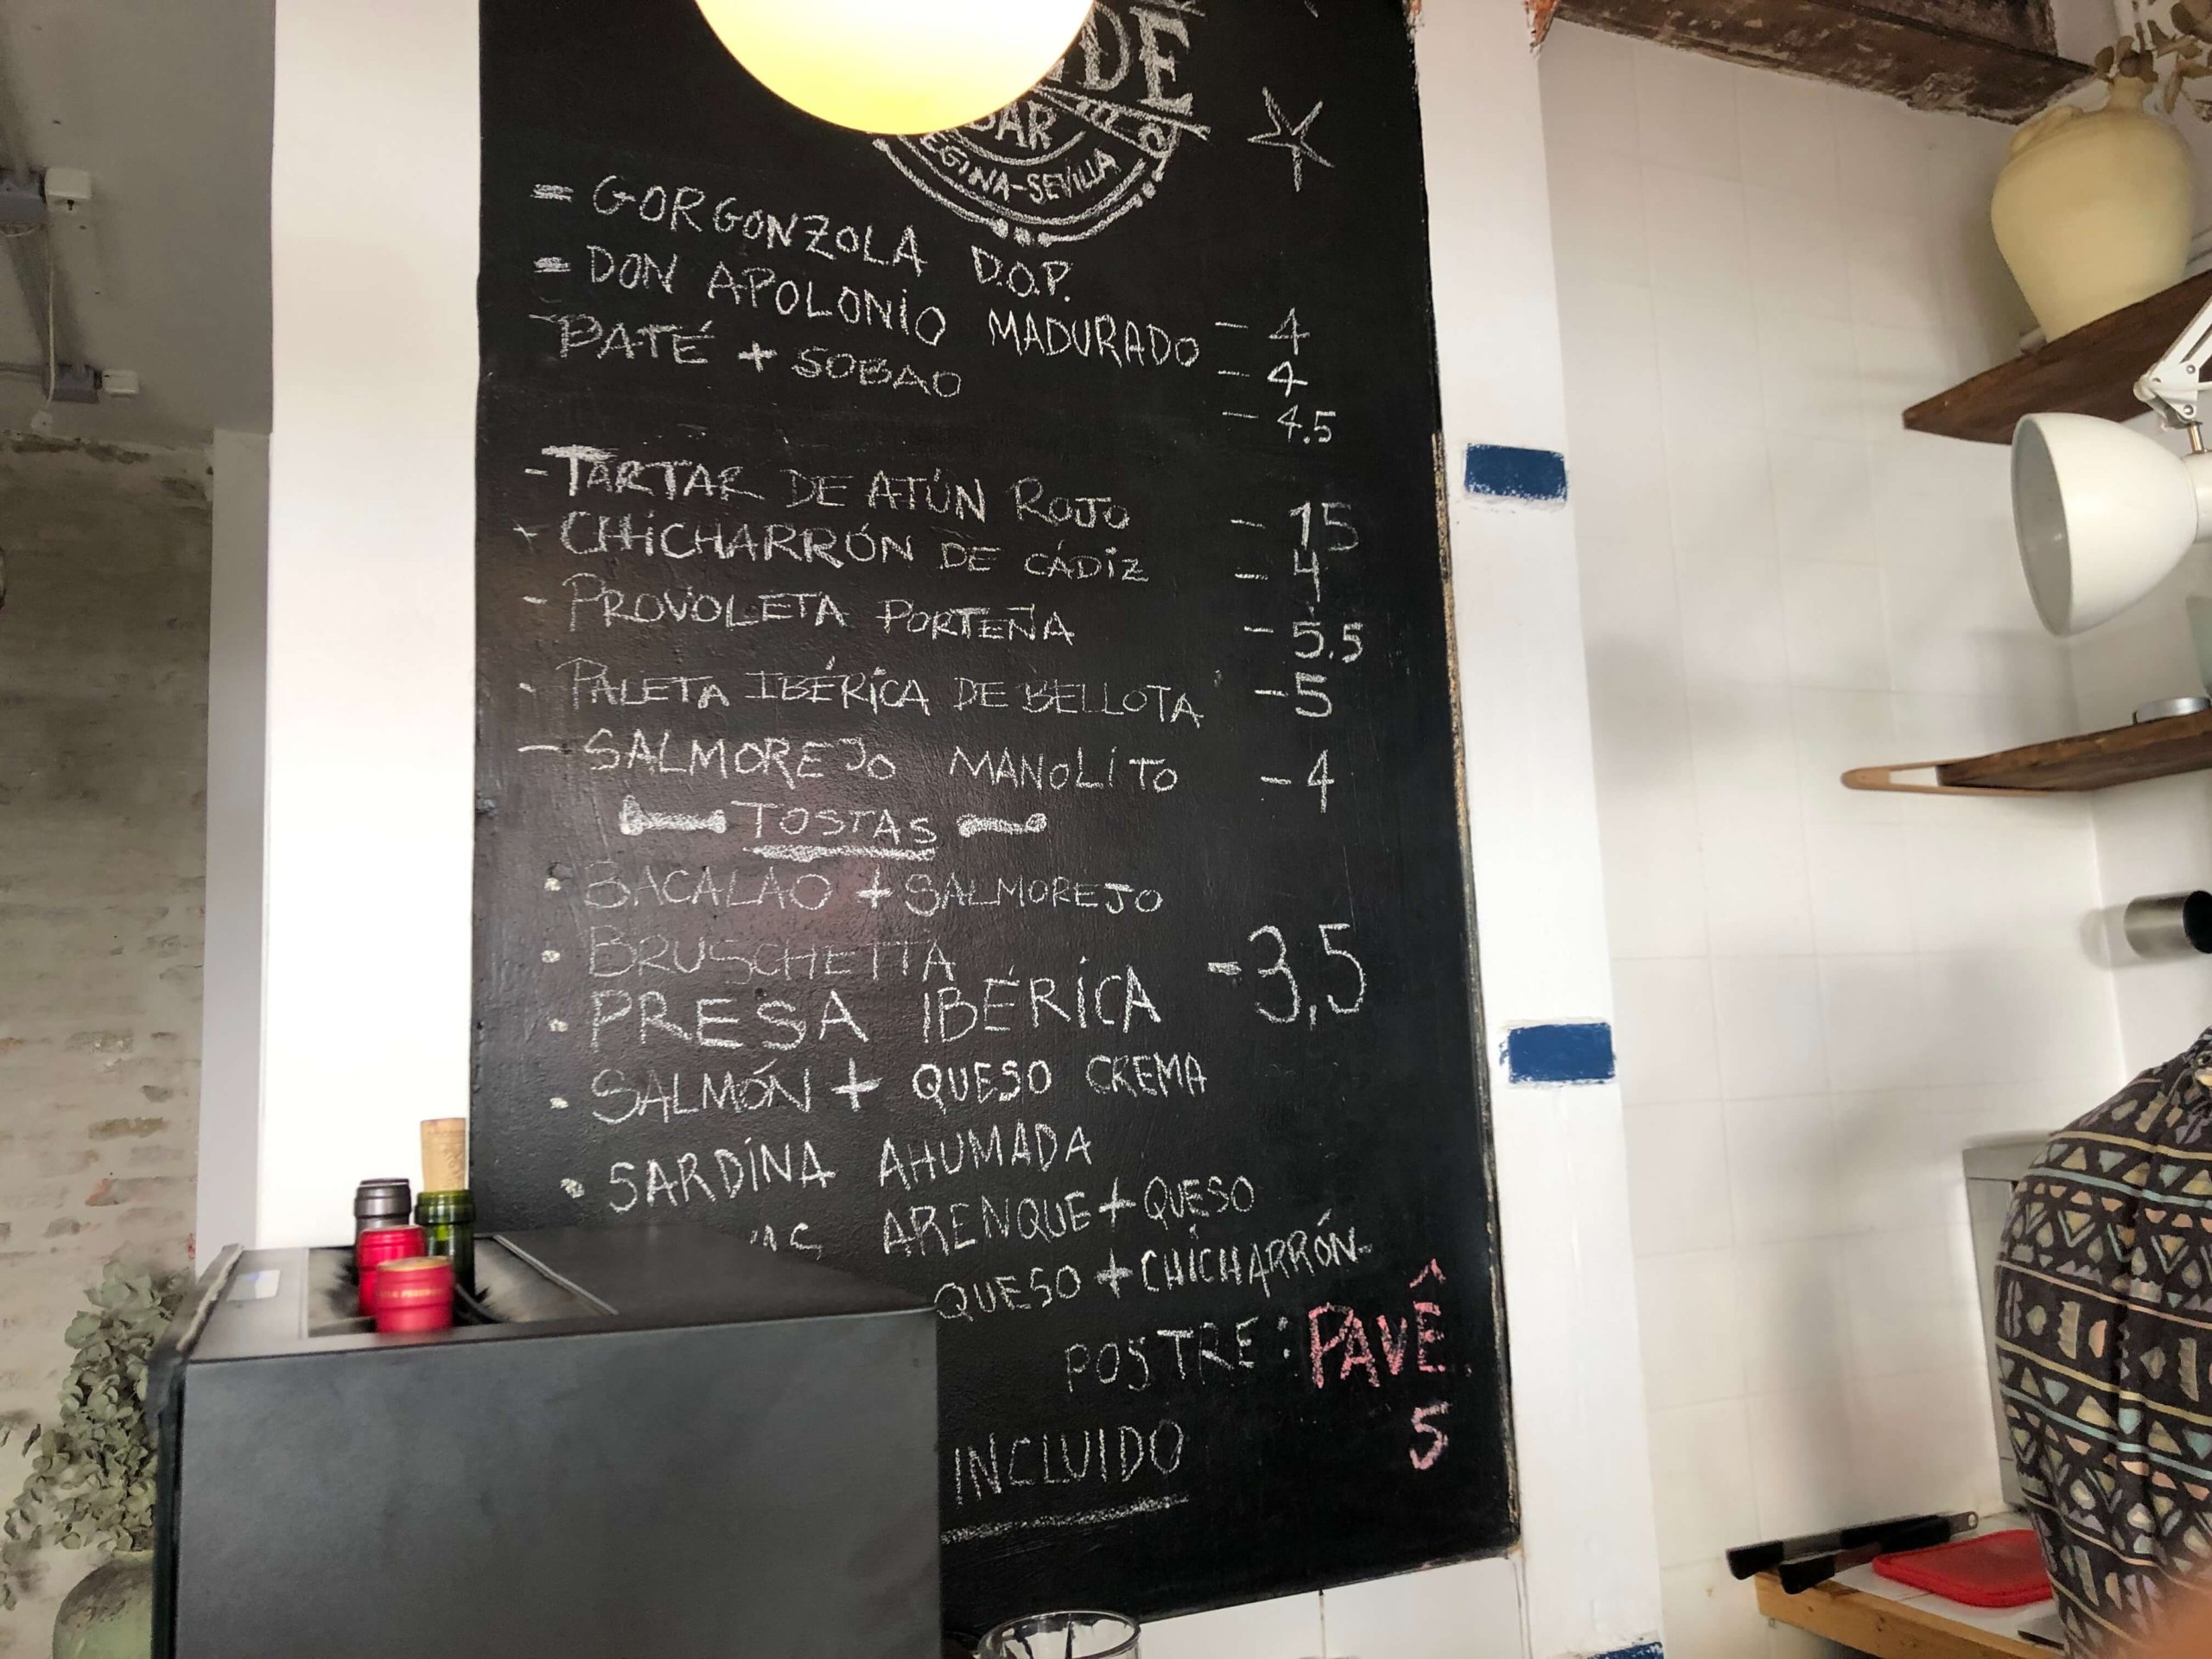 DE
BAR
EGINA-SEVILLA
= GORGONZOLA D.O.P. - 4
= DON APOLONIO MADURADO - 4
- PATÉ + SOBAO - 4.5
- TARTAR DE ATÚN ROJO - 15
- CHICHARRÓN DE CÁDIZ - 4
- PROVOLETA PORTEÑA - 5.5
- PALETA IBÉRICA DE BELLOTA - 5
- SALMOREJO MANOLITO - 4
TOSTAS
• BACALAO + SALMOREJO
• BRUSCHETTA
• PRESA IBÉRICA - 3,5
• SALMÓN + QUESO CREMA
• SARDINA AHUMADA
ARENQUE + QUESO
QUESO + CHICHARRÓN
POSTRE: PAVÊ
5
INCLUIDO